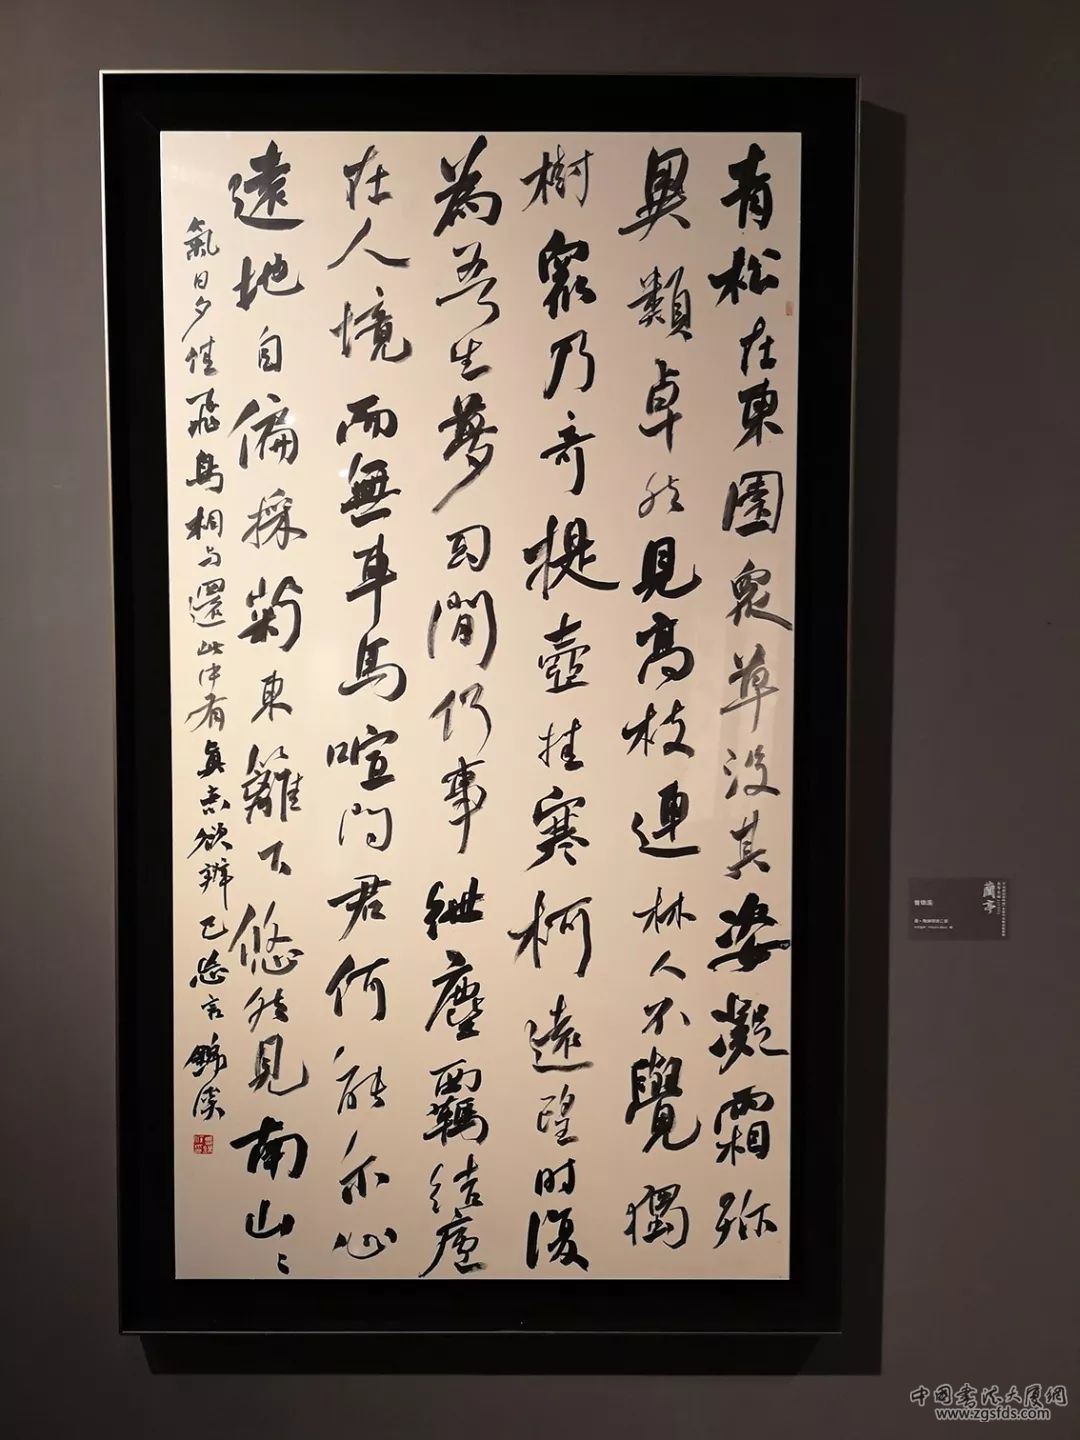 青松在東園眾草没其姿凝霜殄
異類卓然見高枝連林人不覺獨
樹眾乃奇提壺挂寒柯遠望時復
為吾生夢幻間何事紲塵羈結廬
在人境而無車馬喧問君何能尔心
遠地自偏採菊東籬下悠然見南山〻
氣日夕佳飛鳥相与還此中有真意欲辨已忘言 錦溪
蘭亭
曾锦溪
中国书法大厦網
www.zgsfds.com